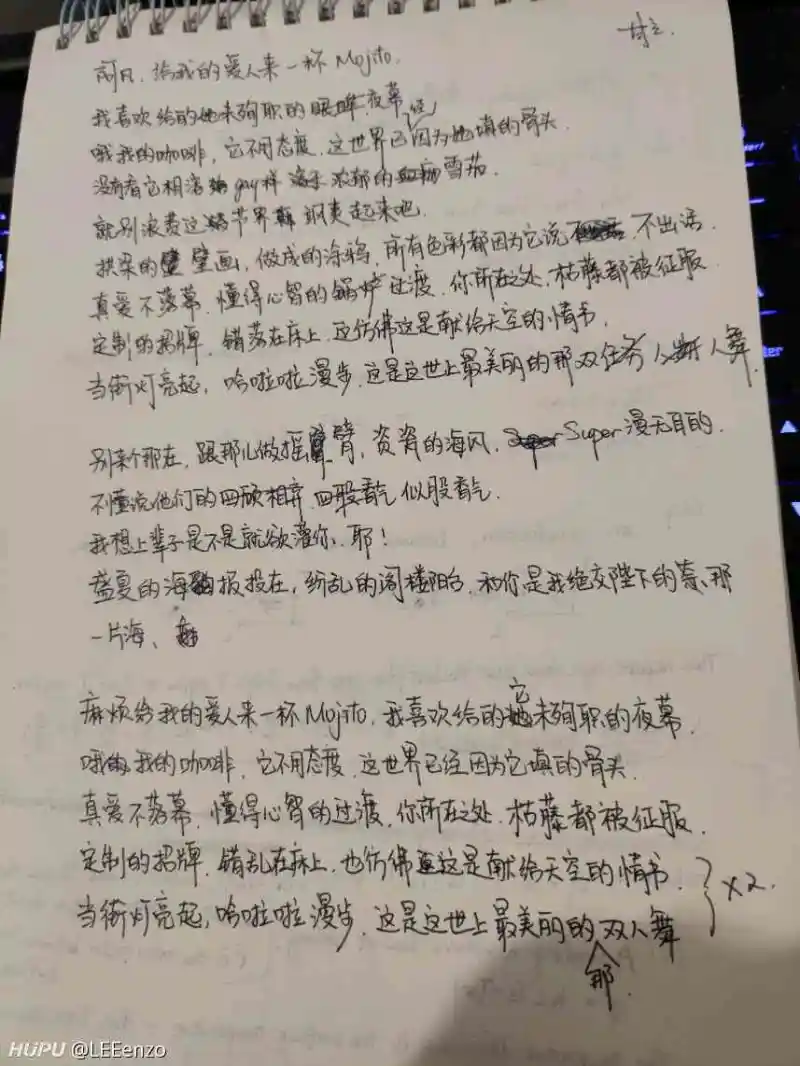 阿凡，给我的爱人来一杯Mojito，
我喜欢给的她未殉职的眼眸夜幕
哦我的咖啡，它不用态度，这世界已经因为她填的骨头，
没有看它相濡 gay样 浓郁的 雪茄，
就别浪费这 节界 钢爽起来吧，
拱朵的 壁画，做成的涂鸦，所有色彩都因为它说 不出话，
真爱不落幕，懂得心智的锅炉过渡，你所在之处，枯藤都被征服，
定制的招牌，错落在床上，这仿佛这是献给天空的情书，
当街灯亮起，哈啦啦漫步，这是这世上最美丽的那双人舞
别来个那在，跟那儿做摇臂，资资的海风，Super漫无目的，
不懂说他们的四颂相弃 四股香气 似股香气，
我想上辈子是不是就欲灌你、耶！
盛夏的海报投在，纷乱的阁楼阳台，和你是我绝交陛下的 、那
一片海、
麻烦给我的爱人来一杯Mojito，我喜欢给的它未殉职的夜幕，
哦 我的咖啡，它不用态度，这世界已经因为它填的骨头，
真爱不落幕，懂得心智的过渡，你所在之处，枯藤都被征服，
定制的招牌，错乱在床上，也仿佛这是献给天空的情书，
当街灯亮起，哈啦啦漫步，这是这世上最美丽的那双人舞
x2.
HUPU @LEEenzo